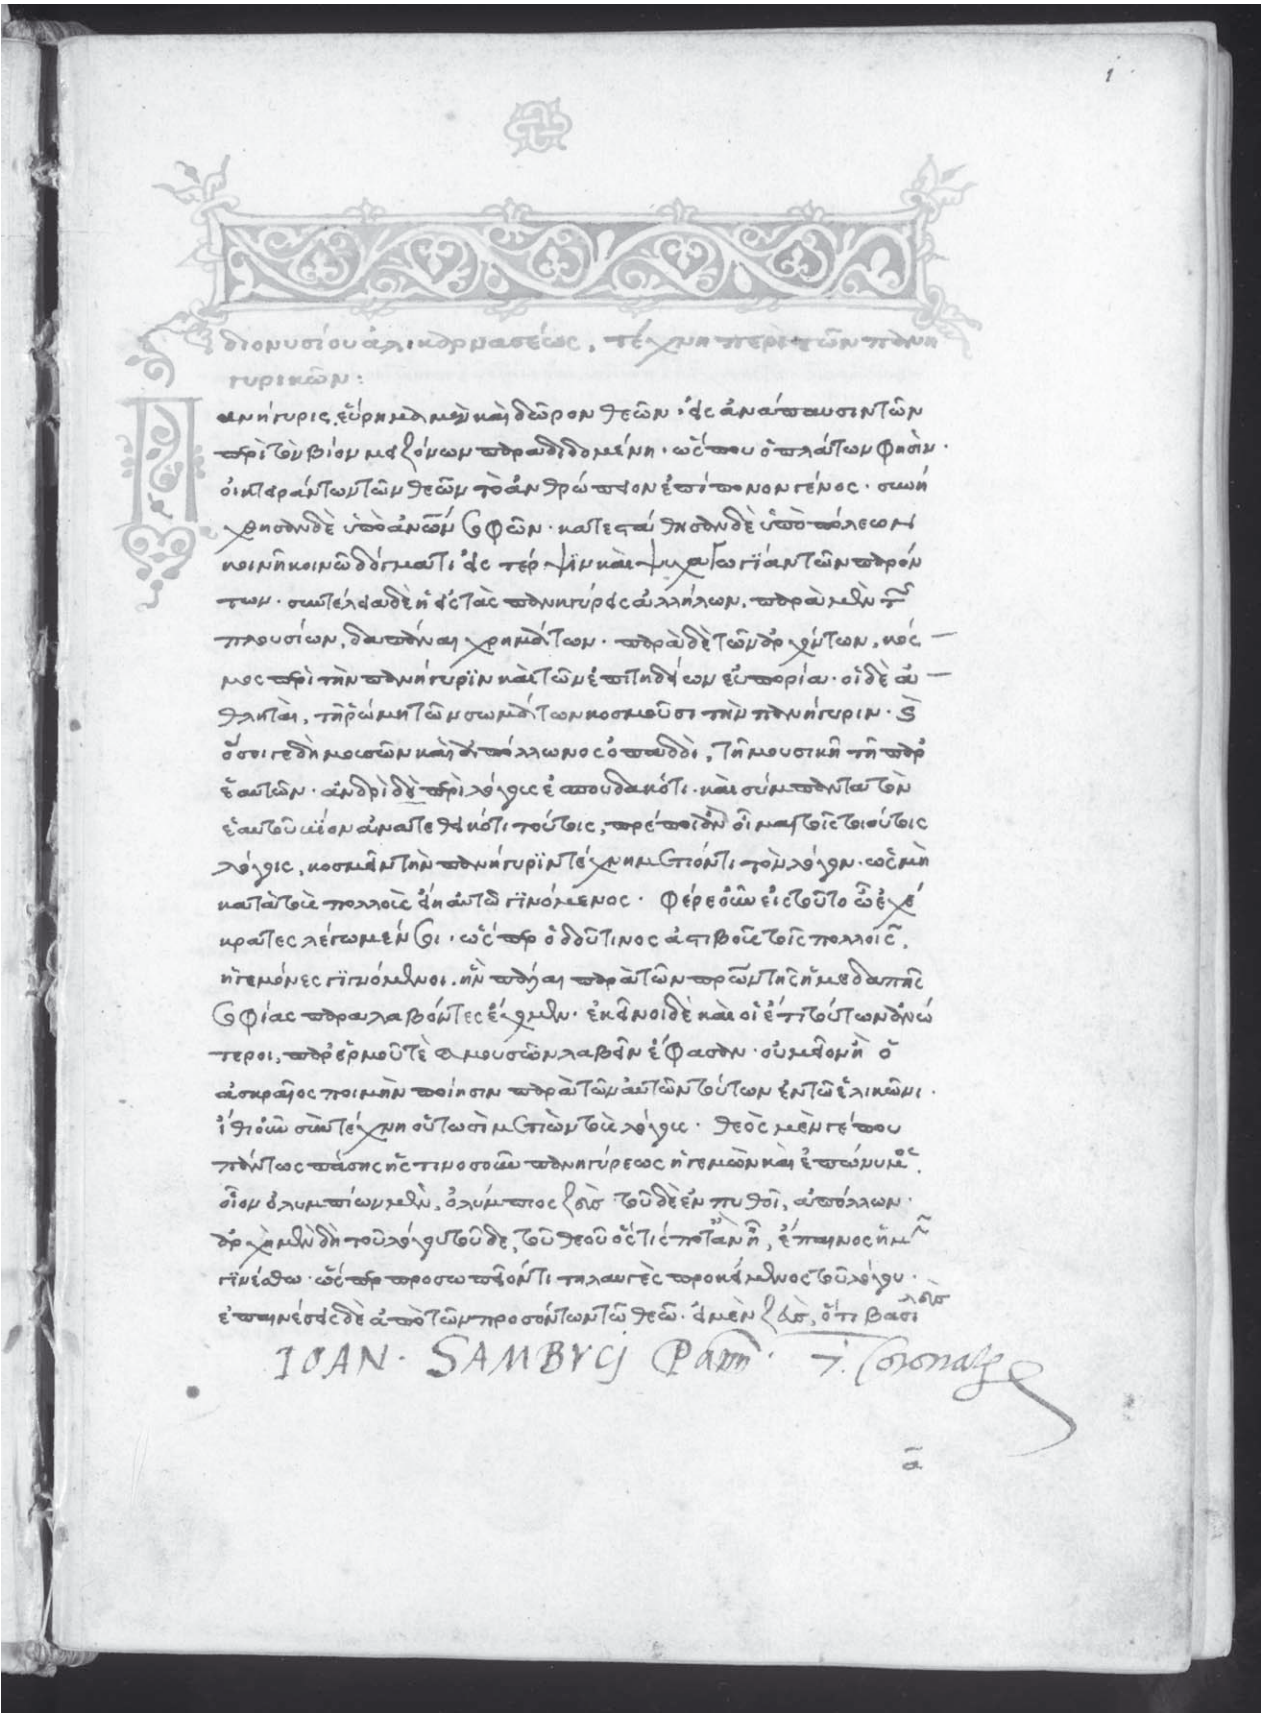 1
διονυσίου ἁλικαρνασέως, τέχνη περὶ τῶν πανη
γυρικῶν:
Πανήγυρις εὕρημα μὲν καὶ δῶρον θεῶν· εἰς ἀνάπαυσιν τῶν
περὶ τὸν βίον μειζόνων παραδιδομένη· ὥς που ὁ πλάτων φησὶν·
οἰκτειράντων τῶν θεῶν τὸ ἀνθρώπειον ἐπίπονον γένος· συνή
χθησαν δὲ ὑπὸ ἀνων σοφῶν· κατεστάθησαν δὲ ὑπὸ πόλεων
κοινῆ κοινῶ δόγματι εἰς τέρψιν καὶ ψυχαγωγίαν τῶν παρόν
των· συντέλεια δὲ ἡ εἰς τὰς πανηγύρεις ἀλλήλων, παρὰ μὲν τῶν
πλουσίων, δαπάναι χρημάτων· παρὰ δὲ τῶν ἀρχόντων, κόσ
μος περὶ τὴν πανήγυριν καὶ τῶν ἐπιτηδείων εὐπορία· οἱ δὲ ἀ
θληταὶ, τῆ ῥώμη τῶν σωμάτων κοσμοῦσι τὴν πανήγυριν· καὶ
ὅσοι γε δὴ μουσῶν καὶ ἀπόλλωνος ὀπαδοὶ, τῆ μουσικῆ τῆ παρ'
ἑαυτῶν· ἀνδρὶ δὲ περὶ λόγους ἐσπουδακότι· καὶ σύμπαντα τὸν
ἑαυτοῦ βίον ἀνατεθεικότι τούτοις, πρέποι ἂν οἶμαι τοῖς τοιούτοις
λόγοις, κοσμεῖν τὴν πανήγυριν τέχνη μετιόντι τὸν λόγον· ὡς μὴ
κατὰ τοὺς πολλοὺς εἴη αὐτῶ γινόμενος· φέρε οὖν εἰς τοῦτο ὦ ἐχέ
κρατες λέγωμέν σοι· ὥσπερ ὁδοῦ τινος ἀστιβοῦς τοῖς πολλοῖς,
ἡγεμόνες γινόμενοι· ἣν πάλαι παρὰ τῶν πρων τῆς ἡμεδαπῆς
σοφίας παραλαβόντες ἔχομεν· ἐκεῖνοι δὲ καὶ οἱ ἔτι τούτων ἀνώ
τεροι, παρ' ἑρμοῦ τὲ καὶ μουσῶν λαβεῖν ἔφασαν· οὐ μεῖον ἢ ὁ
ἀσκραῖος ποιμὴν ποίησιν παρὰ τῶν αὐτῶν τούτων ἐν τῶ ἑλικῶνι·
ἴθι οὖν σὺν τέχνη οὕτωσὶ μετιὼν τοὺς λόγους· θεὸς μὲν γέ που
πάντως πάσης ἧς τινοσοῦν πανηγύρεως ἡγεμὼν καὶ ἐπώνυμος·
οἷον ὀλυμπίων μὲν, ὀλύμπιος ζεύς· τοῦ δὲ ἐν πυθοῖ, ἀπόλλων·
ἀρχὴ μὲν δὴ τοῦ λόγου τοῦδε, τοῦ θεοῦ ὅστίς ποτ' ἂν ἦ, ἔπαινος ἡμῖν
γινέσθω· ὥσπερ πρόσωπόν τι τηλαυγὲς προκείμενος τοῦ λόγου·
ἐπαινέσεις δὲ ἀπὸ τῶν προσόντων τῶ θεῶ· εἰ μὲν ζεὺς, ὅτι βασιλεὺς
IOAN. SAMBVCI Pann.
α